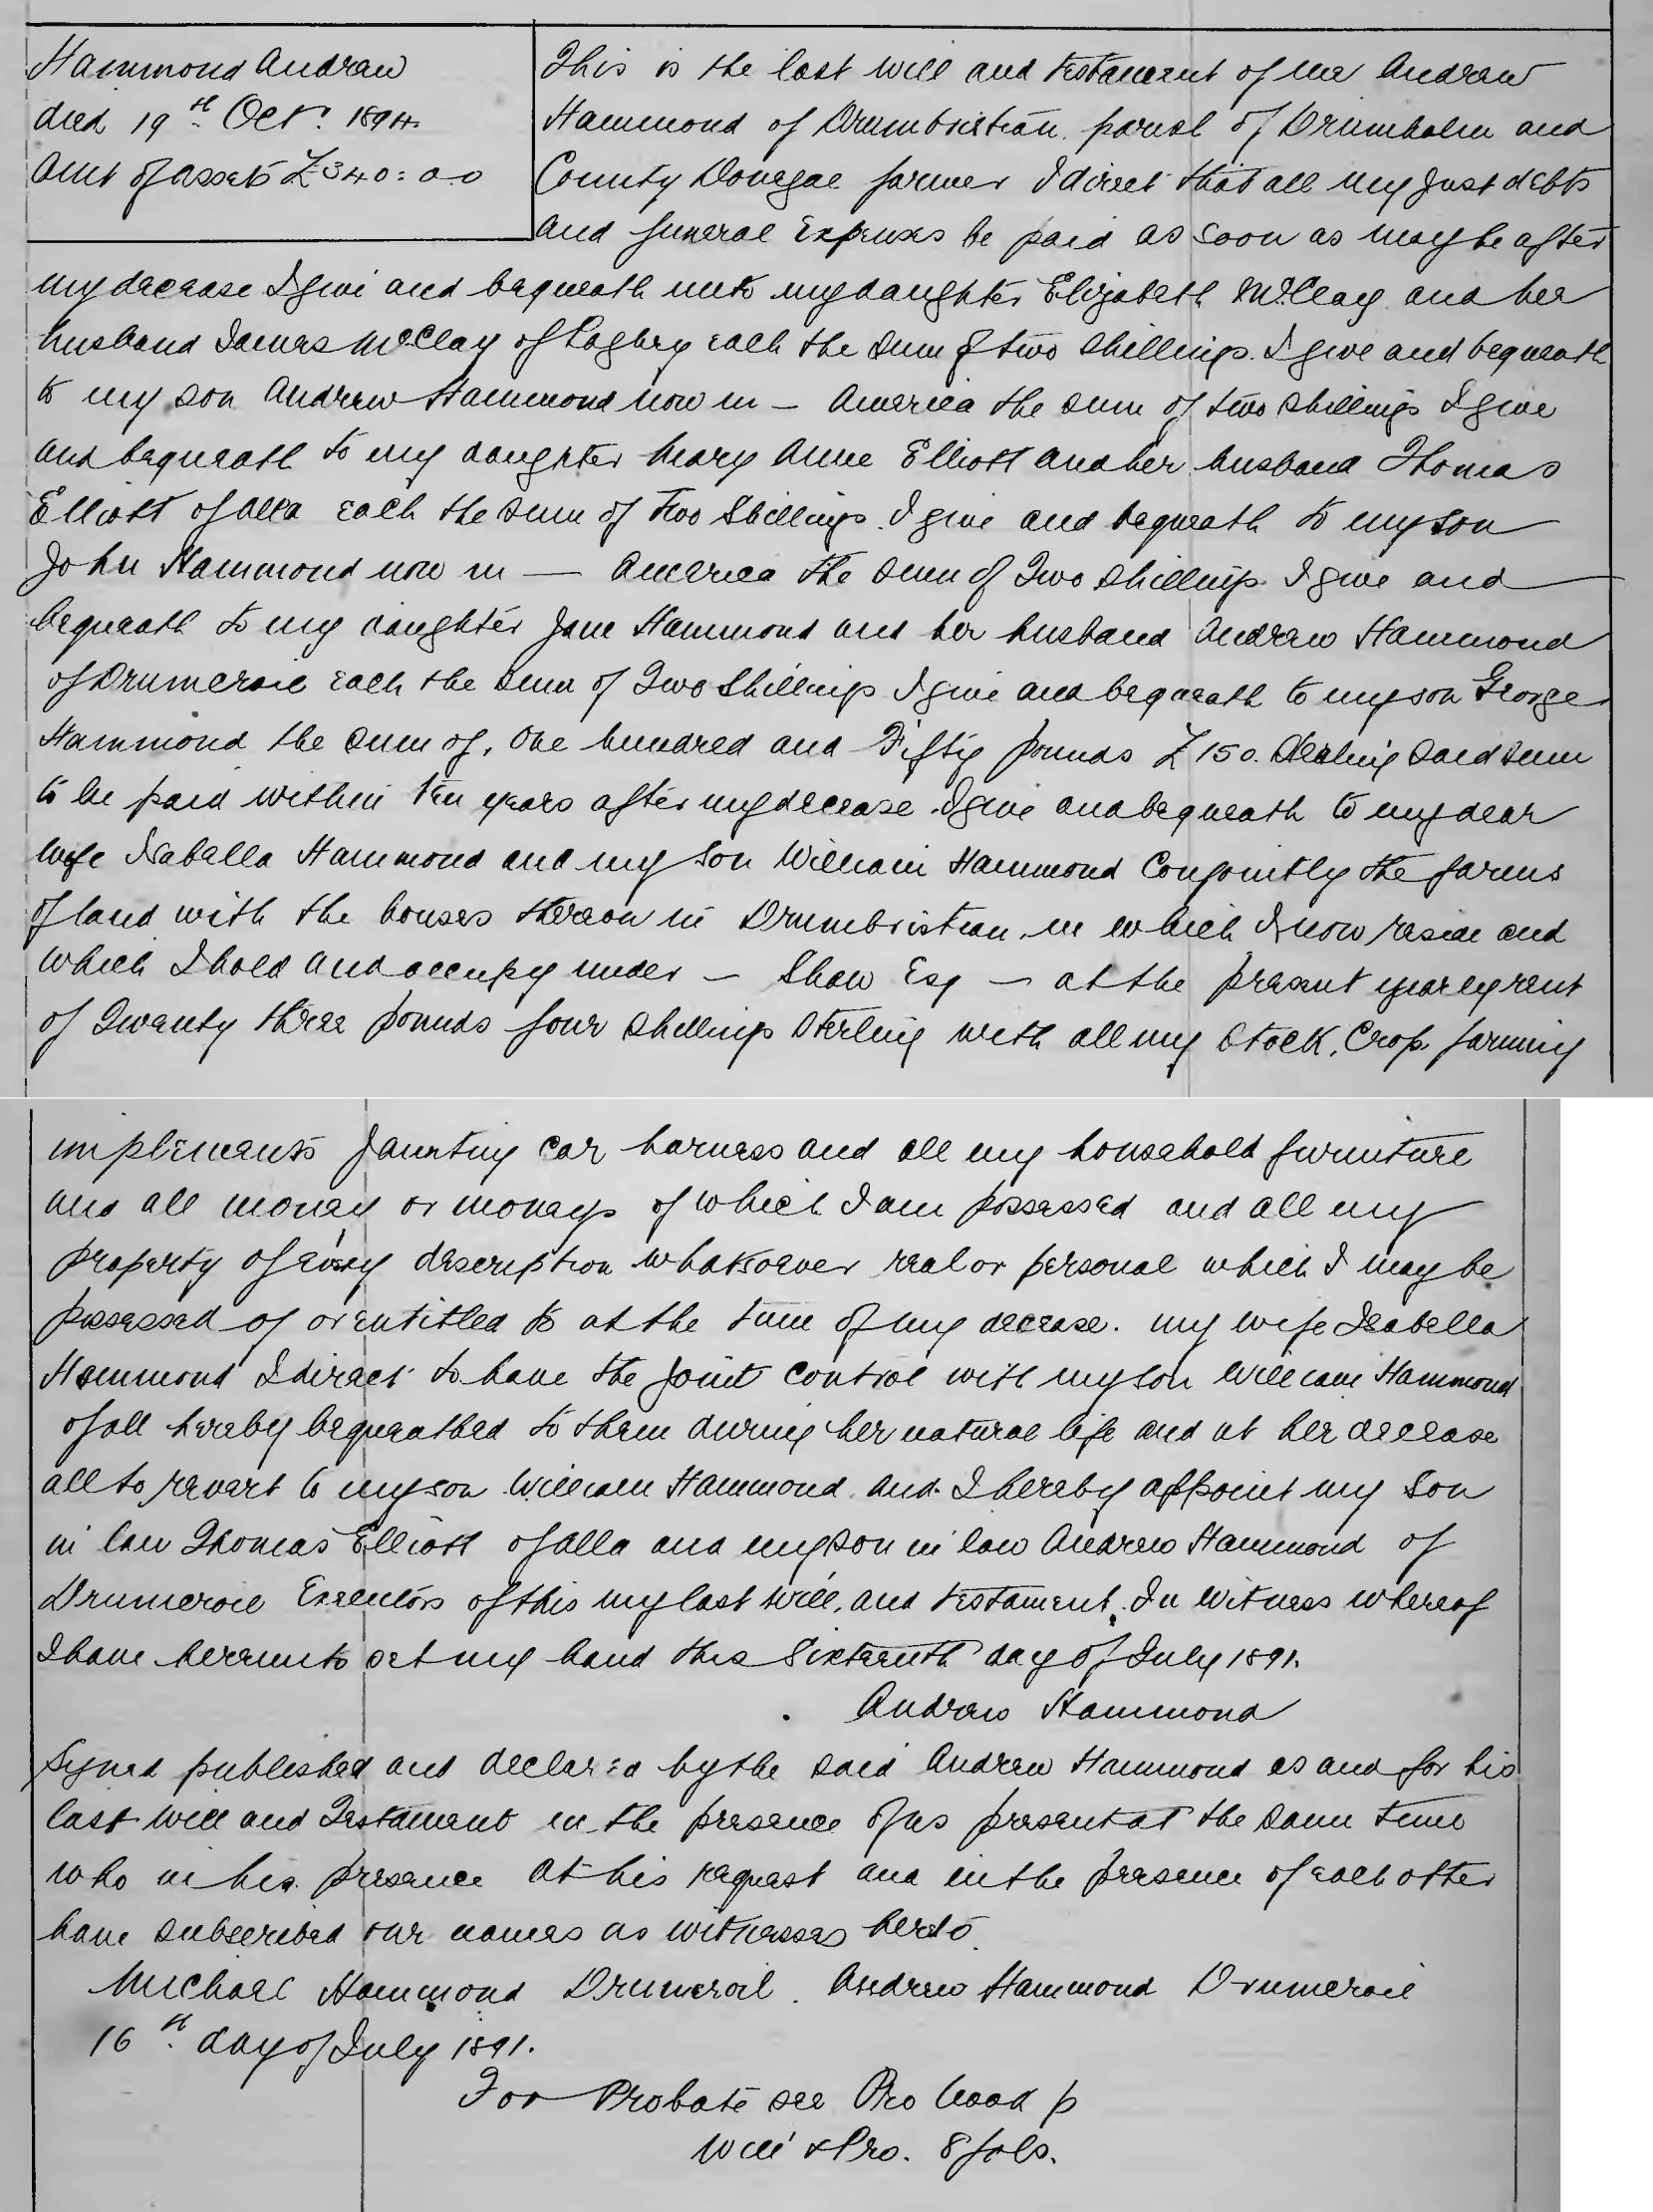 Hammond Andrew
died 19th Oct. 1894.
Amt of assets £340:0:0
This is the last will and testament of me Andrew
Hammond of Drumbristan parish of Drumholm and
County Donegal farmer I direct that all my just debts
and funeral expenses be paid as soon as may be after
my decease I give and bequeath unto my daughter Elizabeth McClay and her
husband James McClay of Laghey each the sum of two shillings. I give and bequeath
to my son Andrew Hammond now in — America the sum of two shillings I give
and bequeath to my daughter Mary Anne Elliott and her husband Thomas
Elliott of Alla each the sum of Two Shillings. I give and bequeath to my son
John Hammond now in — America the sum of Two shillings. I give and
bequeath to my daughter Jane Hammond and her husband Andrew Hammond
of Drumcroil each the sum of Two Shillings I give and bequeath to my son George
Hammond the sum of, One hundred and Fifty pounds £150. Sterling said sum
to be paid within ten years after my decease. I give and bequeath to my dear
wife Isabella Hammond and my son William Hammond Conjointly the farms
of land with the houses thereon in Drumbristan, in which I now reside and
which I hold and occupy under — Shaw Esq — at the present yearly rent
of Twenty three pounds four shillings Sterling with all my Stock, Crop, farming
implements Jaunting car harness and all my household furniture
and all money or moneys of which I am possessed and all my
property of every description whatsoever real or personal which I may be
possessed of or entitled to at the time of my decease. my wife Isabella
Hammond I direct to have the joint control with my son William Hammond
of all hereby bequeathed to them during her natural life and at her decease
all to revert to my son William Hammond and I hereby appoint my Son
in law Thomas Elliott of Alla and my son in law Andrew Hammond of
Drumcroil Executors of this my last will, and testament. In Witness whereof
I have hereunto set my hand this Sixteenth day of July 1891.
Andrew Hammond
Signed published and declared by the said Andrew Hammond as and for his
last will and Testament in the presence of us present at the same time
who in his presence at his request and in the presence of each other
have subscribed our names as witnesses hereto.
Michael Hammond Drumcroil. Andrew Hammond Drumcroil
16th day of July 1891.
For Probate see Pro book p
Will & Pro. 8 fols.